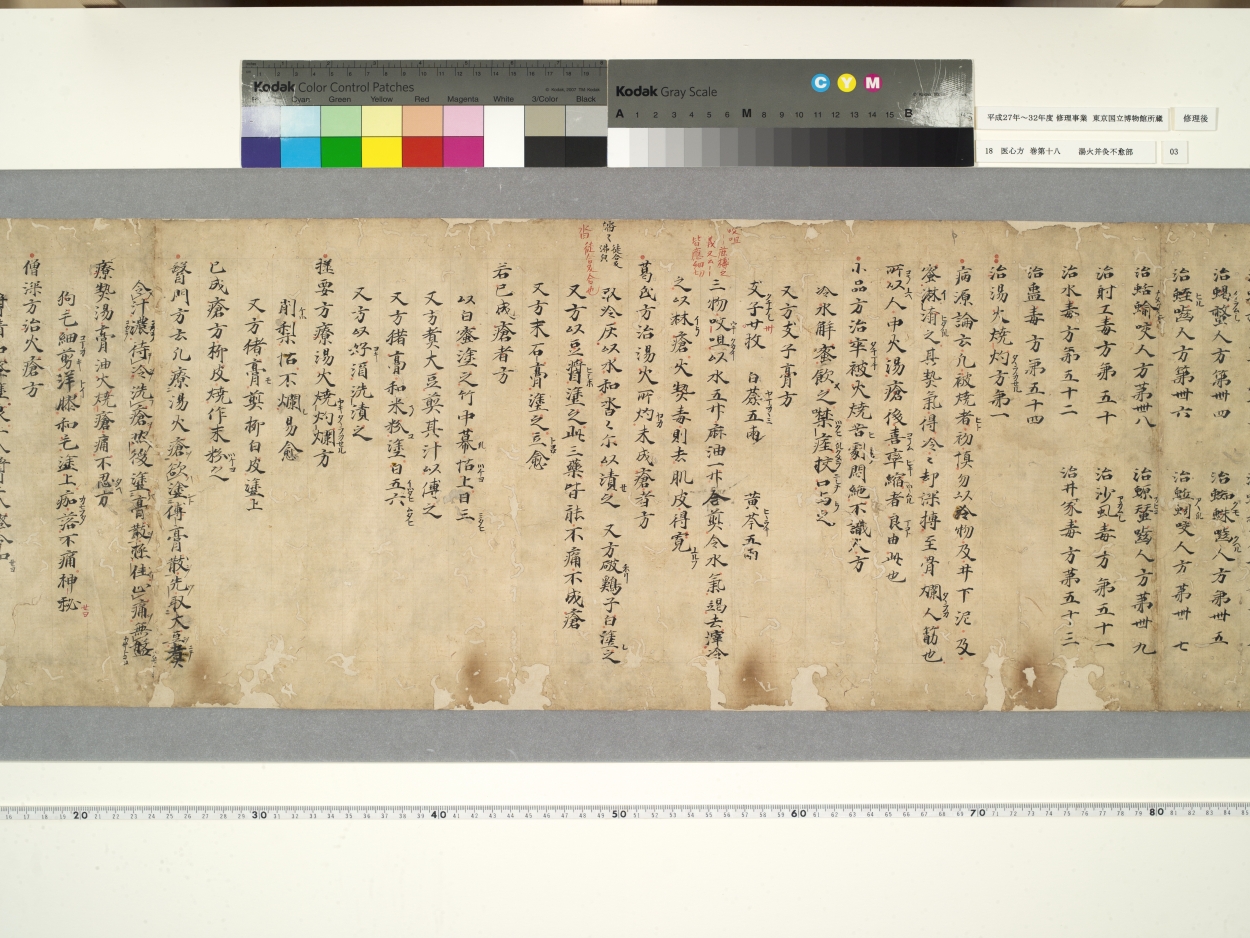 Kodak Color Control Patches
Blue Cyan Green Yellow Red Magenta White 3/Color Black
Kodak Gray Scale
C Y M
A 1 2 3 4 5 6 M 8 9 10 11 12 13 14 15 B
平成27年～32年度 修理事業 東京国立博物館所蔵
修理後
18 医心方 巻第十八 湯火并灸不愈部
03
治蝎螫人方第卌四 治蜘蛛囓人方第卌五
治蛭囓人方第卌六 治蚯蚓咬人方第卌七
治蛞蝓咬人方第卌八 治螈蚕囓人方第卌九
治射工毒方第五十 治沙虱毒方第五十一
治水毒方第五十二 治井冢毒方第五十三
治蠱毒方第五十四
治湯火焼灼方第一
病源論云凡被焼者初慎勿以冷物及井下泥及
蜜淋瀹之其熱氣得冷々却深搏至骨爛人筋也
所以人中火湯瘡後喜攣縮者良由此也
小品方治卒被火焼苦劇悶絶不識人方
冷水和蜜飲之噤痓挍口与之
又方艾子膏方
艾子廿枚 白蔹五両 黄芩五両
三物㕮咀以水五升麻油一升合煎令水氣竭去滓冷
之以淋瘡火熱毒則去肌皮得寛
葛氏方治湯火所灼未成瘡者方
取冷灰以水和沓々尓以漬之 又方破鶏子白塗之
又方以豆醤塗之此三藥皆能不痛不成瘡
又方末石膏塗之立愈
若已成瘡者方
以白蜜塗之竹中幕拈上日三
又方煮大豆煎其汁以傅之
又方猪膏和米粉塗日五六
又方以好酒洗漬之
極要方療湯火焼灼爛方
削梨拈不爛易愈
又方猪膏煎柳白皮塗上
已成瘡方柳皮焼作末粉之
醫門方云凡療湯火瘡欲塗傅膏散先取大豆煮
令汁濃待冷洗瘡然後塗膏散殊佳止痛無瘢
療熱湯膏油火焼瘡痛不忍方
狗毛細剪洋膠和毛塗上痂落不痛神秘
僧深方治火瘡方